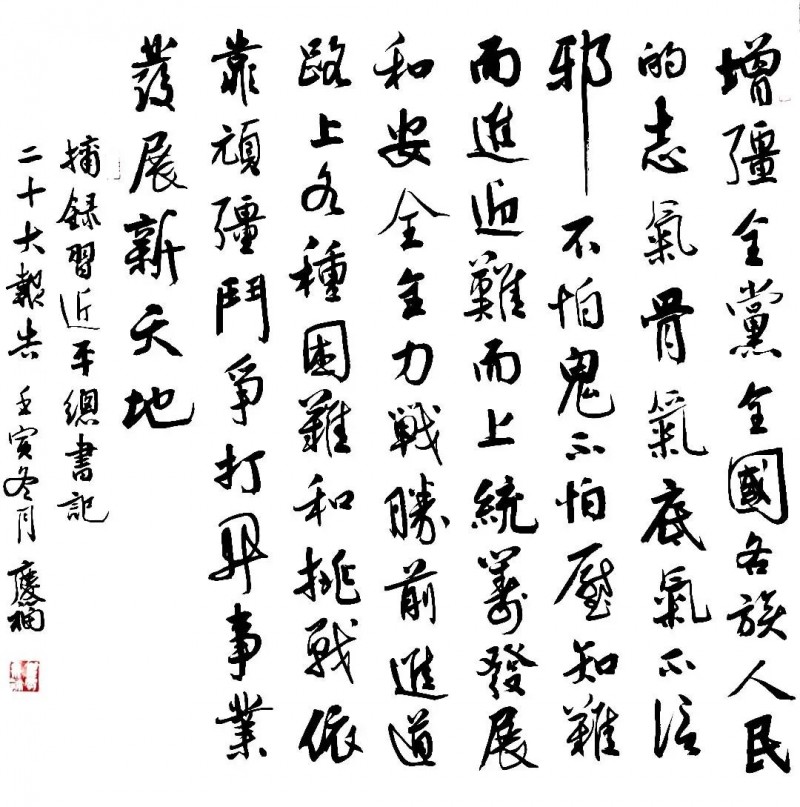 增彊全黨全國各族人民
的志氣骨氣底氣不信
邪不怕鬼不怕壓知難
而進迎難而上統籌發展
和安全全力戰勝前進道
路上各種困難和挑戰依
靠頑彊鬥爭打開事業
發展新天地
摘録習近平總書記
二十大報告 壬寅冬月